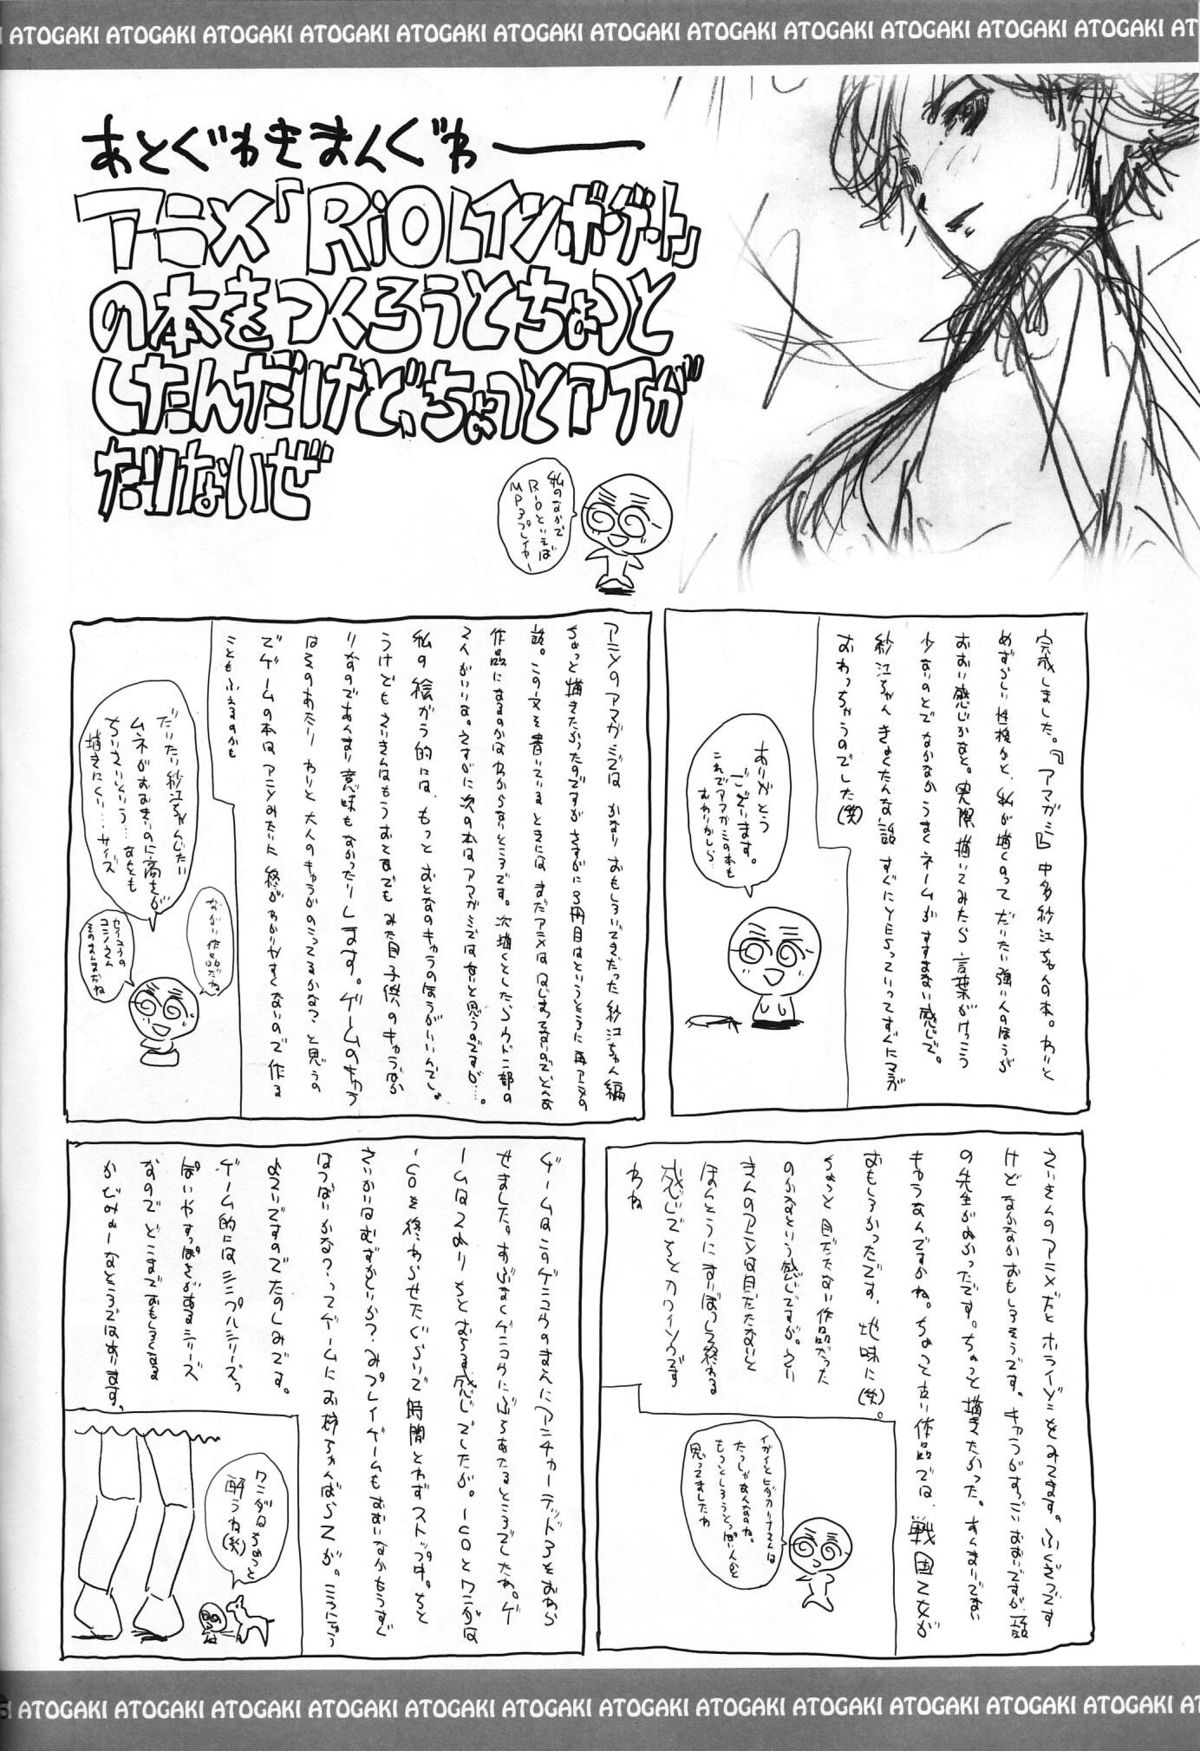 ATOGAKI ATOGAKI ATOGAKI ATOGAKI ATOGAKI ATOGAKI ATOGAKI ATOGAKI ATOGAKI ATOGAKI ATOGAKI ATOGAKI
あとぐわきまんぐわー
アニメ「RiOレインボーゲート」
の本をつくろうとちょっと
したんだけど、ちょっとアイが
たりないぜ
私のなかで
Rioといえば
MP3プレイヤー
完成しました。『アマガミ』中多紗江ちゃんの本。わりと
めずらしい性格かと、私が描くのって だいたい強い人のほうが
おおい感じかなと。実際描いてみたら 言葉がけっこう
少ないのとでなかなか うまくネームが すすまない感じで。
紗江ちゃん きょくたんな話 すぐにYESっていってすぐにマンガ
おわっちゃうのでした(笑)
ありがとう
ございます。
これでアマガミの本も
おわりかしら
アニメのアマガミでは かなり おもしろいできだった 紗江ちゃん編
ちょっと描きたかったのですが さすがに3冊目はというところに 再アニメの
話。この文を書いているときには まだアニメは はじまってないので どんな
作品になるのかは わからないところです。次描くとしたら
私の絵がら的には、もっと おとなのキャラのほうがいいんでしょ
うけども
りなのであんまり意味もなかったりします。ゲームのキャラ
はそのあたり わりと 大人のキャラがのってるかな?と思うの
でゲームの本は アニメみたいに 終がわかりやすくないので 作る
こともふえるのかも
だいたい紗江ちゃんじたい
ムネがおおきいのに高さが
ちいさいという…なんとも
描きにくい…サイズ
ながい作品だわ
さいきんのアニメだと ホライゾンをみてます。ふくざつです
けど なかなかおもしろそうです。キャラがすっごいおおいですが 話
の先生がよかったです。ちょっと描きたかった。すくまりでない
キャラなんですかね。ちょっと古い作品では、戦国乙女が
おもしろかったです、地味に(笑)。
ちょっと目だたない作品だった
のかなという感じですが。さい
きんのアニメは目だたないと
ほんとうに まいぼつして終わる
感じで ちとカワイソウです
わね
思ってましたわ
ゲームは このゲンコウのまえに アンチャーテッド3をおわら
せました。あぶなくゲンコウにぶちあたるところでしたわ。ゲ
ームは つまり ちと おちる感じでしたが。ICOとワンダは
ICOを終わらせたぐらいで 時間とれずストップ中。ちと
さいかいはむずかしいか?みプレイゲームもおおいなか もうすぐ
はつばいかな?ってゲームに お姉ちゃんばらZが。
よさいですのでたのしみです。
ゲーム的には シンプルシリーズっ
ぽい やすっぽさがあるシリーズ
なので どこまでおもしろくなる
かじみょーなところではあります。
ワンダは ちょっと
酔うね(笑)
ATOGAKI ATOGAKI ATOGAKI ATOGAKI ATOGAKI ATOGAKI ATOGAKI ATOGAKI ATOGAKI ATOGAKI ATOGAKI ATOGAKI